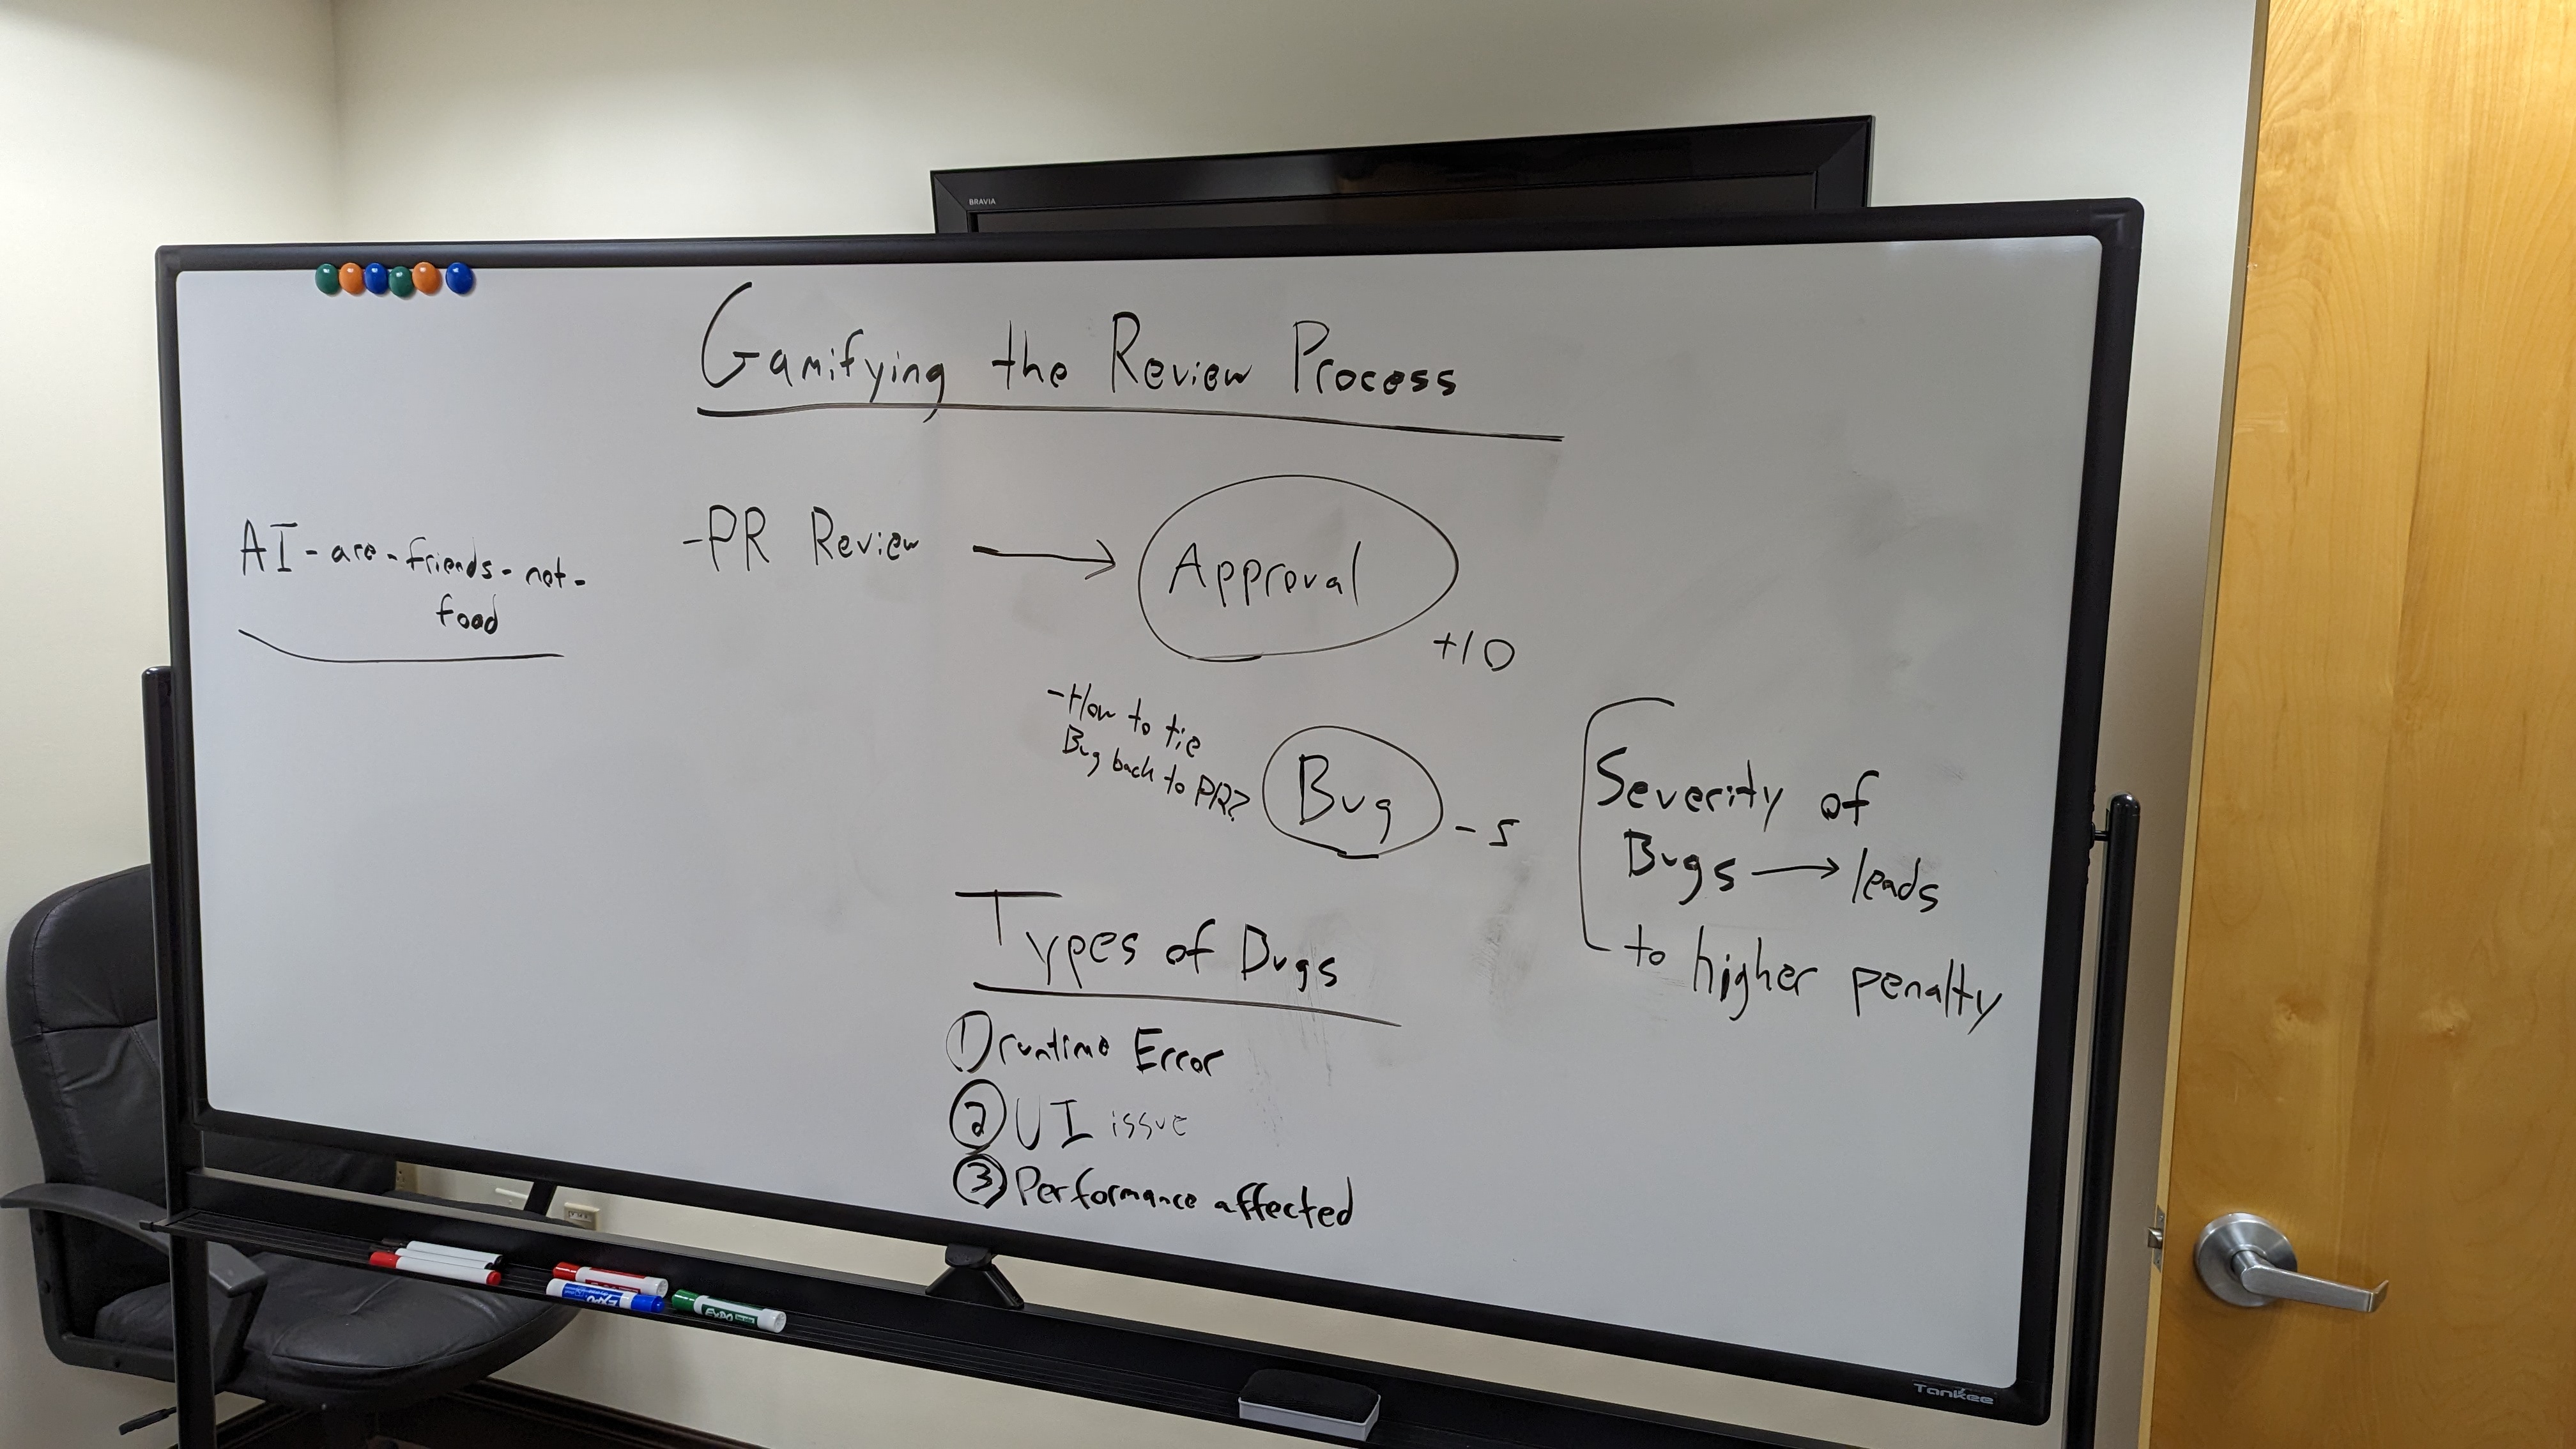 BRAVIA
Gamifying the Review Process
AI-are-friends-not-
food
-PR Review → Approval
+10
-How to tie
Bug back to PR?
Bug
-5
Severity of
Bugs → leads
to higher penalty
Types of Bugs
1) runtime Error
2 UI issue
3 Performance affected
EXPO
EXPO
Tankee